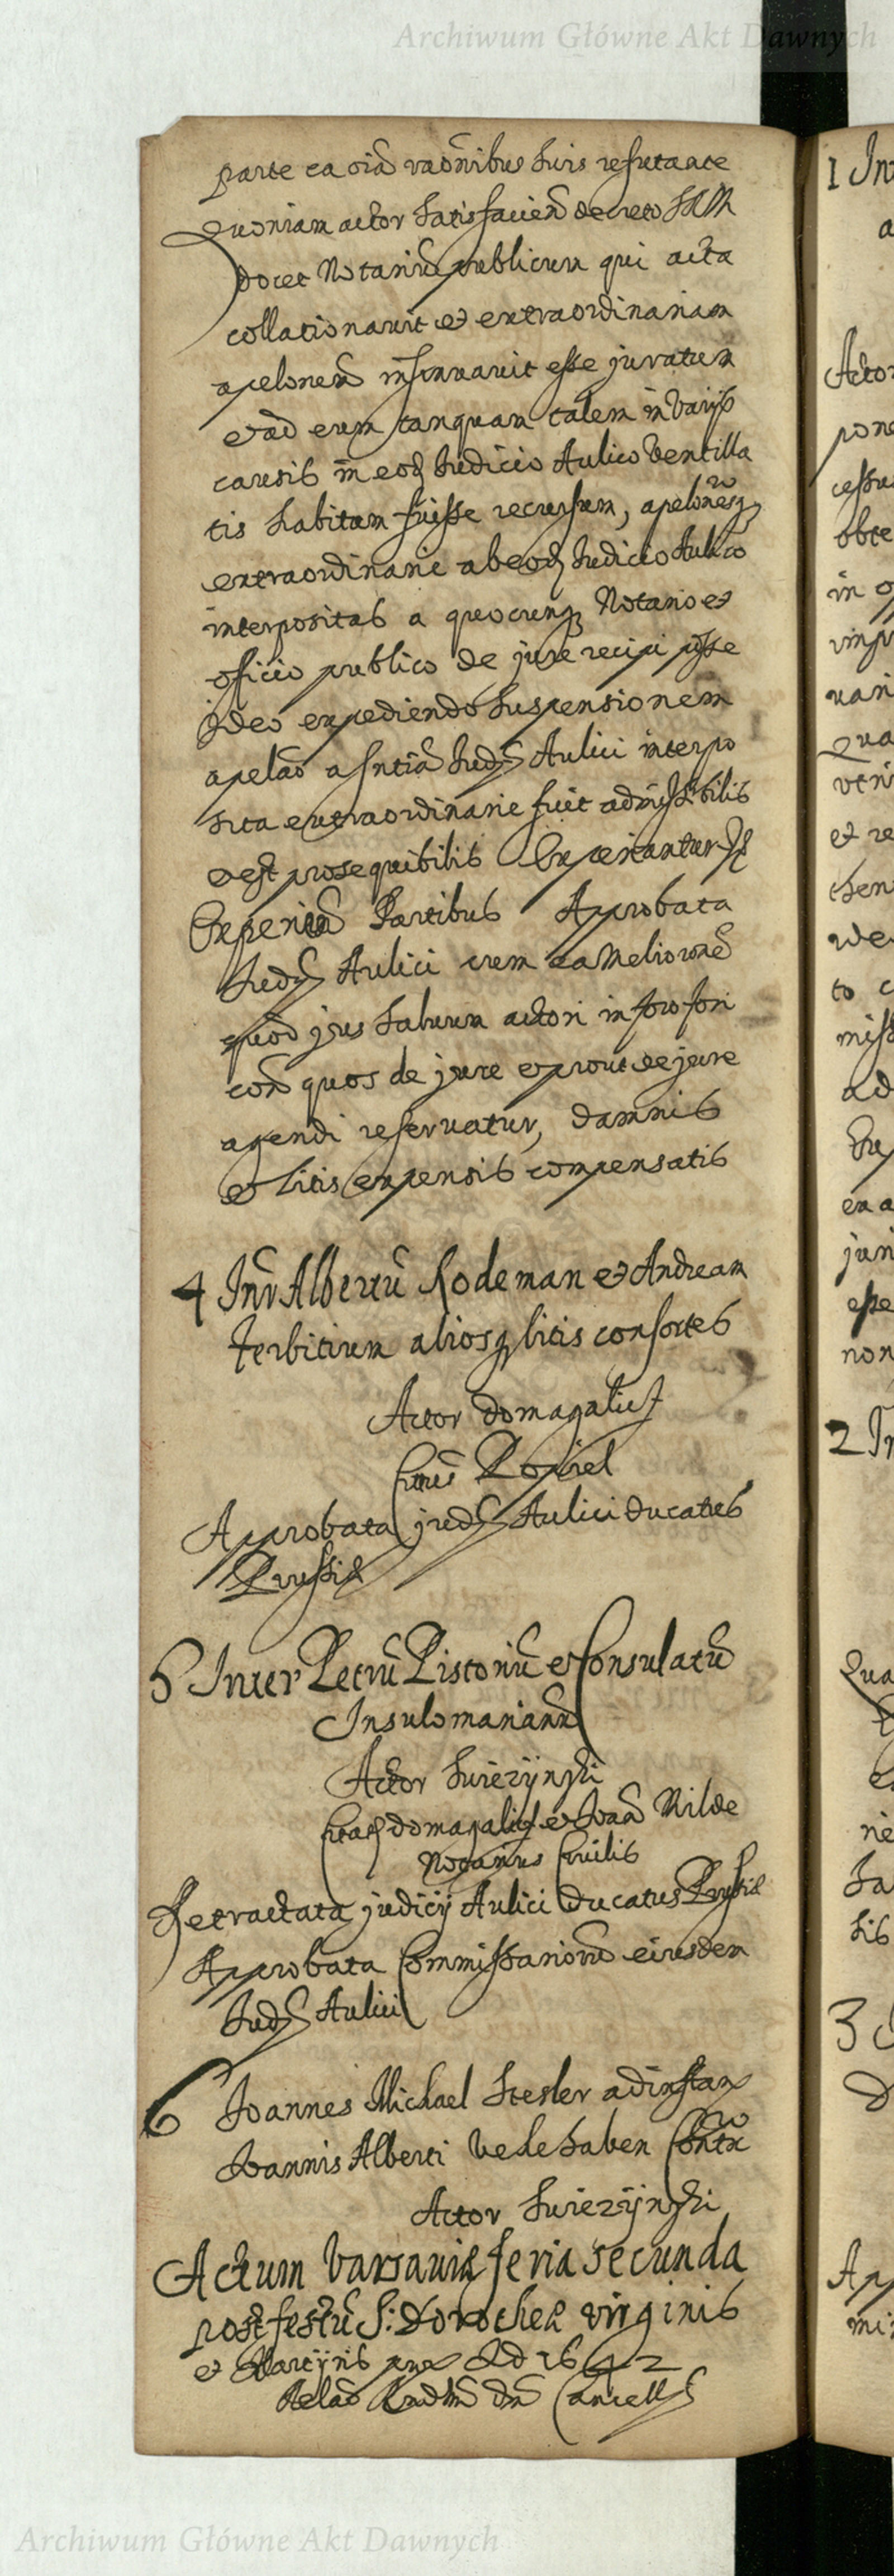 Archiwum Główne Akt Dawnych
parte ea oia raonibus suis refutante
Quoniam actor satisfacien decreto SRM
docet Notariu publicum qui acta
collationavit et extraordinariam
apelonem insinuavit esse juratum
et ad eum tanquam talem in varijs
causis in eod Judicio Aulico ventilla
tis habitum fuisse recursum, apelonesq
extraordinarie ab eod Judicio Aulico
interpositas a quocunq Notario et
officio publico de jure recipi posse
ideo expediendo suspensionem
apelao a sntia Judy Aulici interpo
sita extraordinarie fuit admissibilis
et est prosequibilis Experiantur
Experien Partibus Aprobata
Judy Aulici cum ea melioraone
quod jus salvum actori in foro fori
con quos de jure et prout de jure
agendi reservatur, damnis
et litis expensis compensatis
4 Inr Albertu Rodeman et Andream
Terbitium aliosq litis consortes
Actor Domagalius
Popiel
Aprobata judy Aulici Ducatus
Prussiæ
5 Inter Petru Pistoriu et Consulatu
Insulomarian
Actor Swiezÿnski
Domagalius et Joan Milde
Notarius Civilis
Retractata judicij Aulici Ducatus Prussiæ
Approbata Commissarioru eiusdem
Judy Aulici
6 Joannes Michael Stesler ad instan
Joannis Alberti Vedehaben Contu
Actor Swiezÿnski
Actum Varsaviæ feria secunda
post festu S: Dorotheæ virginis
et Martÿris prox Ad 1642
Relao Rndmi Dni Cancell
1 In
a
Acto
pone
cessu
obte
in
vari
Qua
veri
et re
then
to c
miss
ad
ex a
juri
esse
non
2 In
Qua
ne
Sa
sis
3
Ap
mi
Archiwum Główne Akt Dawnych